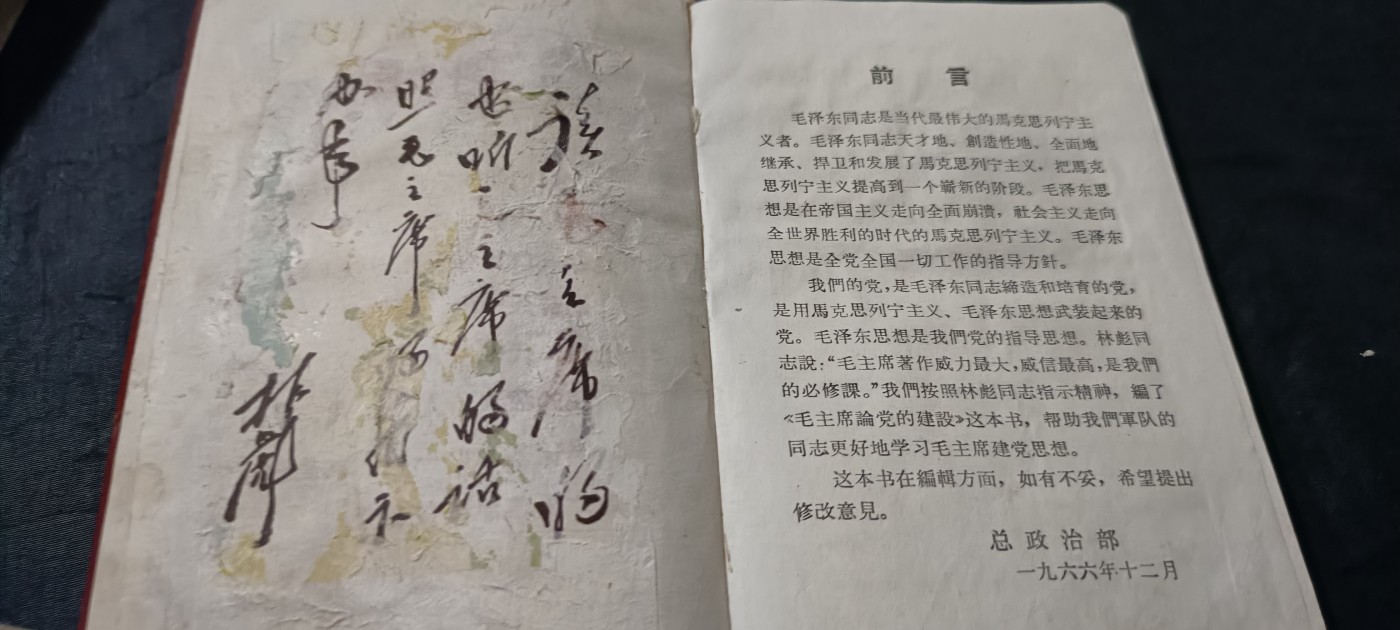 读 主席的
书听 主席的话
照毛主席的指示
办事
林彪
前言
毛泽东同志是当代最伟大的馬克思列宁主
义者。毛泽东同志天才地、創造性地、全面地
继承、捍卫和发展了馬克思列宁主义，把馬克
思列宁主义提高到一个崭新的阶段。毛泽东思
想是在帝国主义走向全面崩溃，社会主义走向
全世界胜利的时代的馬克思列宁主义。毛泽东
思想是全党全国一切工作的指导方針。
我們的党，是毛泽东同志締造和培育的党，
是用馬克思列宁主义、毛泽东思想武装起来的
党。毛泽东思想是我們党的指导思想。林彪同
志說：“毛主席著作威力最大，威信最高，是我們
的必修課。”我們按照林彪同志指示精神，編了
《毛主席論党的建設》这本书，帮助我們軍队的
同志更好地学习毛主席建党思想。
这本书在編輯方面，如有不妥，希望提出
修改意見。
总政治部
一九六六年十二月